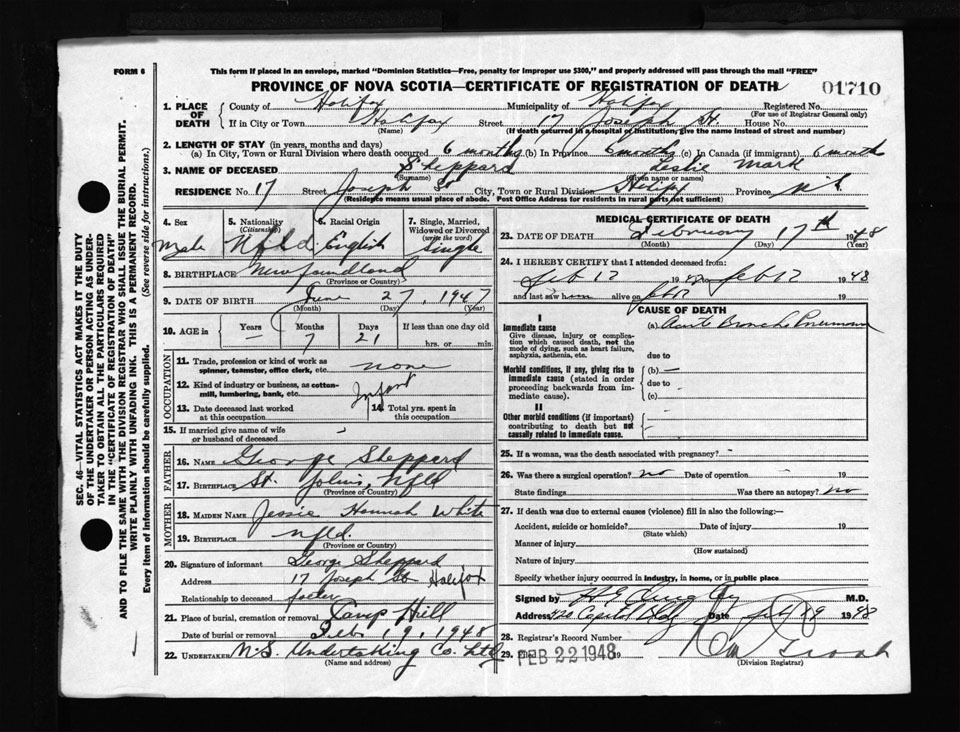 FORM 6
This form if placed in an envelope, marked "Dominion Statistics—Free, penalty for improper use $300," and properly addressed will pass through the mail "FREE"
PROVINCE OF NOVA SCOTIA—CERTIFICATE OF REGISTRATION OF DEATH
01710
SEC. 46—VITAL STATISTICS ACT MAKES IT THE DUTY
OF THE UNDERTAKER OR PERSON ACTING AS UNDER-
TAKER TO OBTAIN ALL THE PARTICULARS REQUIRED
IN THE "CERTIFICATE OF REGISTRATION OF DEATH"
AND TO FILE THE SAME WITH THE DIVISION REGISTRAR WHO SHALL ISSUE THE BURIAL PERMIT.
WRITE PLAINLY WITH UNFADING INK. THIS IS A PERMANENT RECORD.
Every item of information should be carefully supplied. (See reverse side for instructions.)
1. PLACE OF DEATH
County of Halifax Municipality of Halifax Registered No.
(For use of Registrar General only)
If in City or Town Halifax Street 17 Joseph St. House No.
(Name) (If death occurred in a hospital or institution, give the name instead of street and number)
2. LENGTH OF STAY (in years, months and days)
(a) In City, Town or Rural Division where death occurred 6 months (b) In Province 6 months (c) In Canada (if immigrant) 6 months
3. NAME OF DECEASED Sheppard Leslie Mark
(Surname) (Given name or names)
RESIDENCE No. 17 Street Joseph St City, Town or Rural Division Halifx Province N.S.
(Residence means usual place of abode. Post Office Address for residents in rural parts not sufficient)
4. Sex Male
5. Nationality (Citizenship) Nfld.
6. Racial Origin English
7. Single, Married, Widowed or Divorced (write the word) Single
8. BIRTHPLACE Newfoundland
(Province or Country)
9. DATE OF BIRTH June 27, 1947
(Month) (Day) (Year)
10. AGE in Years — Months 7 Days 21 If less than one day old hrs. or min.
OCCUPATION
11. Trade, profession or kind of work as spinner, teamster, office clerk, etc. none
12. Kind of industry or business, as cotton-mill, lumbering, bank, etc. Infant
13. Date deceased last worked at this occupation
14. Total yrs. spent in this occupation
15. If married give name of wife or husband of deceased -
FATHER
16. NAME George Sheppard
17. BIRTHPLACE St. Johns, Nfld
(Province or Country)
MOTHER
18. MAIDEN NAME Jessie Hannah White
19. BIRTHPLACE nfld.
(Province or Country)
20. Signature of informant George Sheppard
Address 17 Joseph St. Halifax
Relationship to deceased
21. Place of burial, cremation or removal Camp Hill
Date of burial or removal Feb. 19, 1948
22. UNDERTAKER N.S. Undertaking Co. Ltd
(Name and address)
MEDICAL CERTIFICATE OF DEATH
23. DATE OF DEATH February 17th 1948
(Month) (Day) (Year)
24. I HEREBY CERTIFY that I attended deceased from:
Feb 12 1948 Feb 17 1948
and last saw him alive on Feb 17 19
CAUSE OF DEATH
I
Immediate cause
Give disease, injury or complication which caused death, not the mode of dying, such as heart failure, asphyxia, asthenia, etc.
(a) Acute Broncho Pneumonia
due to
Morbid conditions, if any, giving rise to immediate cause (stated in order proceeding backwards from immediate cause).
(b) —
due to -
(c)
II
Other morbid conditions (if important) contributing to death but not causally related to immediate cause.
25. If a woman, was the death associated with pregnancy? -
26. Was there a surgical operation? no Date of operation - 19
State findings Was there an autopsy? no
27. If death was due to external causes (violence) fill in also the following:—
Accident, suicide or homicide? Date of injury 19
(State which)
Manner of injury
(How sustained)
Nature of injury
Specify whether injury occurred in industry, in home, or in public place
Signed by M.D.
Address 420 Capitol Bldg Date Feb 19 1948
28. Registrar's Record Number
29. Filed FEB 22 1948 19
(Division Registrar)